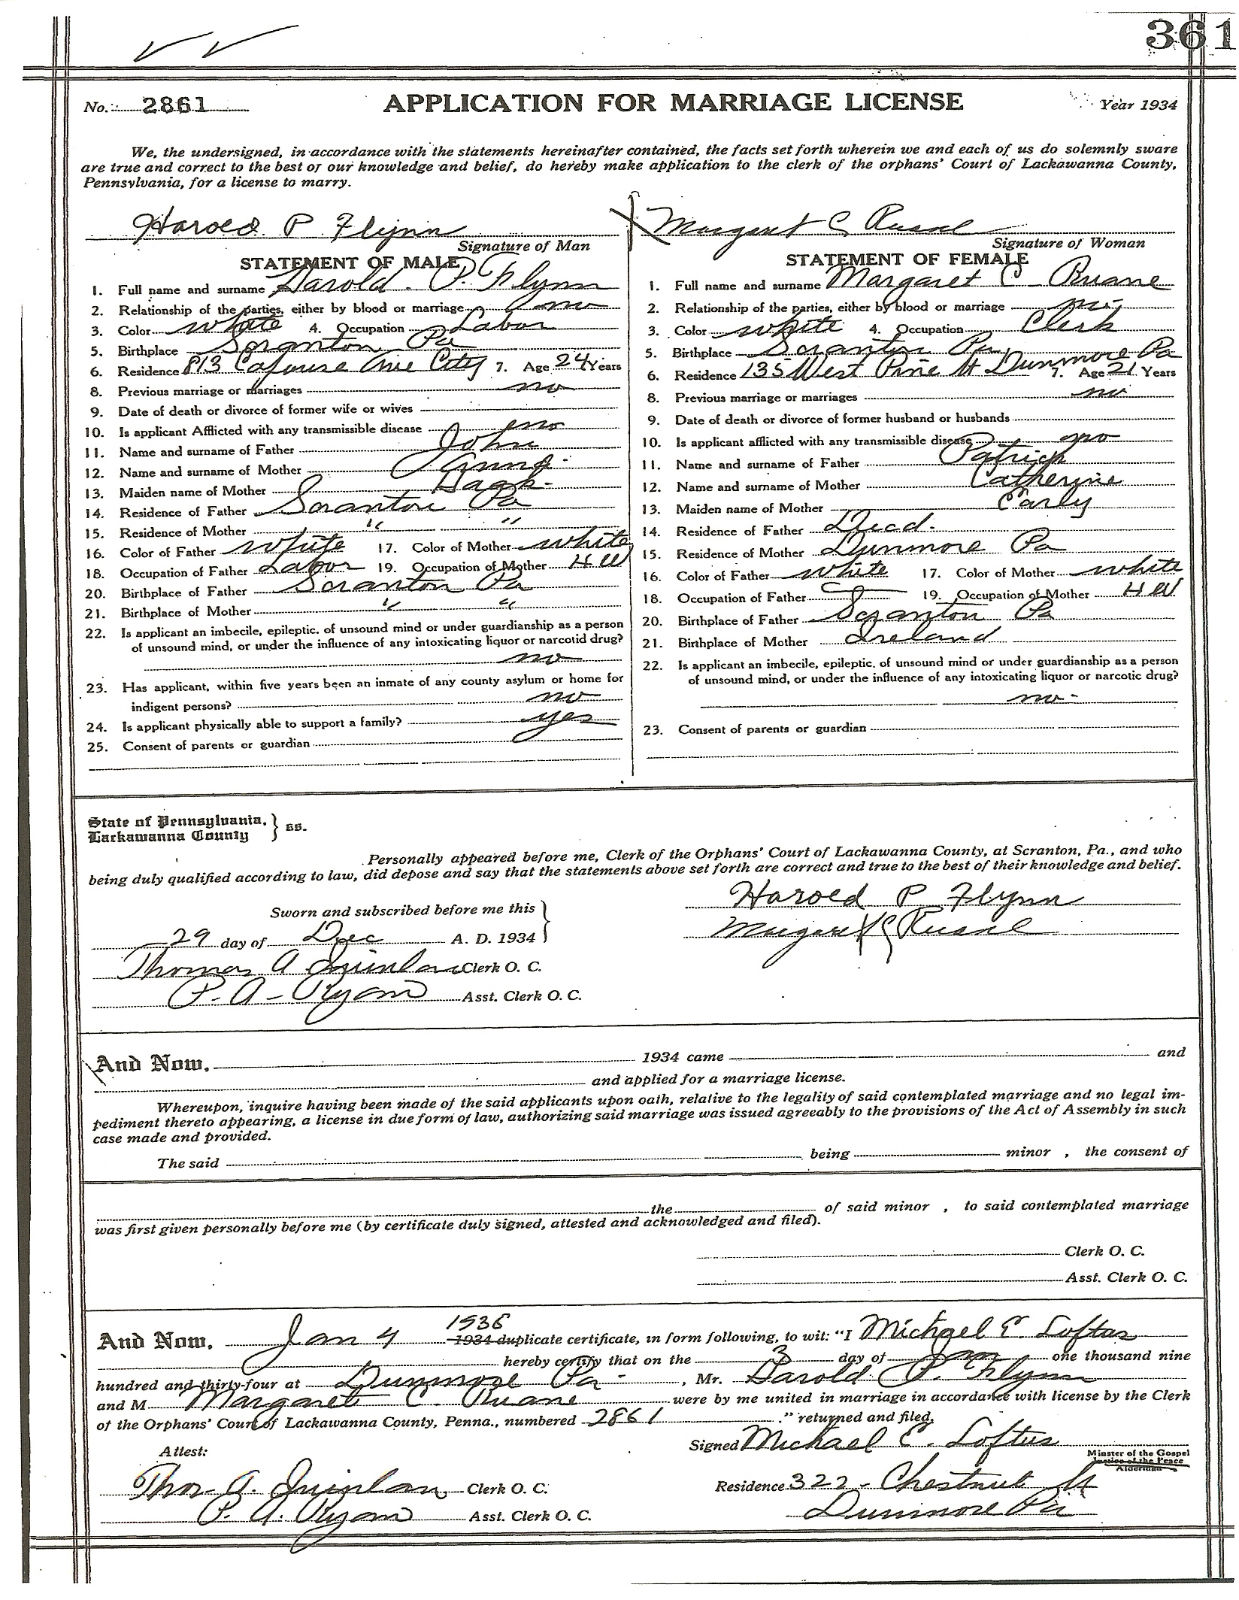 361
No. 2861 APPLICATION FOR MARRIAGE LICENSE Year 1934
We, the undersigned, in accordance with the statements hereinafter contained, the facts set forth wherein we and each of us do solemnly sware
are true and correct to the best of our knowledge and belief, do hereby make application to the clerk of the orphans' Court of Lackawanna County,
Pennsylvania, for a license to marry.
Harold P Flynn
Signature of Man
STATEMENT OF MALE
1. Full name and surname Harold. P. Flynn
2. Relationship of the parties, either by blood or marriage no
3. Color White 4. Occupation Labor
5. Birthplace Scranton Pa
6. Residence 813 Capouse Ave City 7. Age 24 Years
8. Previous marriage or marriages no
9. Date of death or divorce of former wife or wives
10. Is applicant Afflicted with any transmissible disease no
11. Name and surname of Father John
12. Name and surname of Mother Anna
13. Maiden name of Mother
14. Residence of Father Scranton Pa
15. Residence of Mother " "
16. Color of Father White 17. Color of Mother White
18. Occupation of Father Labor 19. Occupation of Mother H W
20. Birthplace of Father Scranton Pa
21. Birthplace of Mother " "
22. Is applicant an imbecile, epileptic, of unsound mind or under guardianship as a person
of unsound mind, or under the influence of any intoxicating liquor or narcotid drug?
no
23. Has applicant, within five years been an inmate of any county asylum or home for
indigent persons? no
24. Is applicant physically able to support a family? yes
25. Consent of parents or guardian
Margaret C Ruane
Signature of Woman
STATEMENT OF FEMALE
1. Full name and surname Margaret C Ruane
2. Relationship of the parties, either by blood or marriage no
3. Color White 4. Occupation Clerk
5. Birthplace Scranton Pa
6. Residence 135 West Pine St Dunmore Pa 7. Age 21 Years
8. Previous marriage or marriages no
9. Date of death or divorce of former husband or husbands
10. Is applicant afflicted with any transmissible disease no
11. Name and surname of Father Patrick
12. Name and surname of Mother Catherine
13. Maiden name of Mother Early
14. Residence of Father Dead.
15. Residence of Mother Dunmore Pa
16. Color of Father White 17. Color of Mother White
18. Occupation of Father 19. Occupation of Mother H W
20. Birthplace of Father Scranton Pa
21. Birthplace of Mother Ireland
22. Is applicant an imbecile, epileptic, of unsound mind or under guardianship as a person
of unsound mind, or under the influence of any intoxicating liquor or narcotic drug?
no
23. Consent of parents or guardian
State of Pennsylvania,
Lackawanna County } ss.
Personally appeared before me, Clerk of the Orphans' Court of Lackawanna County, at Scranton, Pa., and who
being duly qualified according to law, did depose and say that the statements above set forth are correct and true to the best of their knowledge and belief.
Harold P Flynn
Margaret C Ruane
Sworn and subscribed before me this
29 day of Dec A. D. 1934
Thomas A Quinlan Clerk O. C.
P. A. Ryan Asst. Clerk O. C.
And Now, 1934 came and
and applied for a marriage license.
Whereupon, inquire having been made of the said applicants upon oath, relative to the legality of said contemplated marriage and no legal im-
pediment thereto appearing, a license in due form of law, authorizing said marriage was issued agreeably to the provisions of the Act of Assembly in such
case made and provided.
The said being minor , the consent of
the of said minor , to said contemplated marriage
was first given personally before me (by certificate duly signed, attested and acknowledged and filed).
Clerk O. C.
Asst. Clerk O. C.
1936
And Now, Jan 4 1934 duplicate certificate, in form following, to wit: "I Michael E. Loftus
hereby certify that on the 3 day of Jan one thousand nine
hundred and thirty-four at Dunmore Pa , Mr. Harold P. Flynn
and M Margaret C. Ruane were by me united in marriage in accordance with license by the Clerk
of the Orphans' Court of Lackawanna County, Penna., numbered 2861 ." returned and filed,
Signed Michael E. Loftus
Minster of the Gospel
Justice of the Peace
Alderman
Attest:
Thos. A. Quinlan Clerk O. C.
P. A. Ryan Asst. Clerk O. C.
Residence 322 Chestnut St
Dunmore Pa